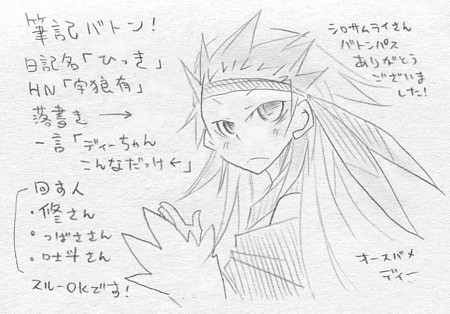 筆記バトン!
日記名「ひっき」
HN「宇狼有」
落書き→
一言「ディーちゃん
こんなだっけ←」
回す人
・修さん
・つばささん
・吐斗さん
スルーOKです!
シロサムライさん
バトンパス
ありがとう
ございま
した!
オースバメ
ディー